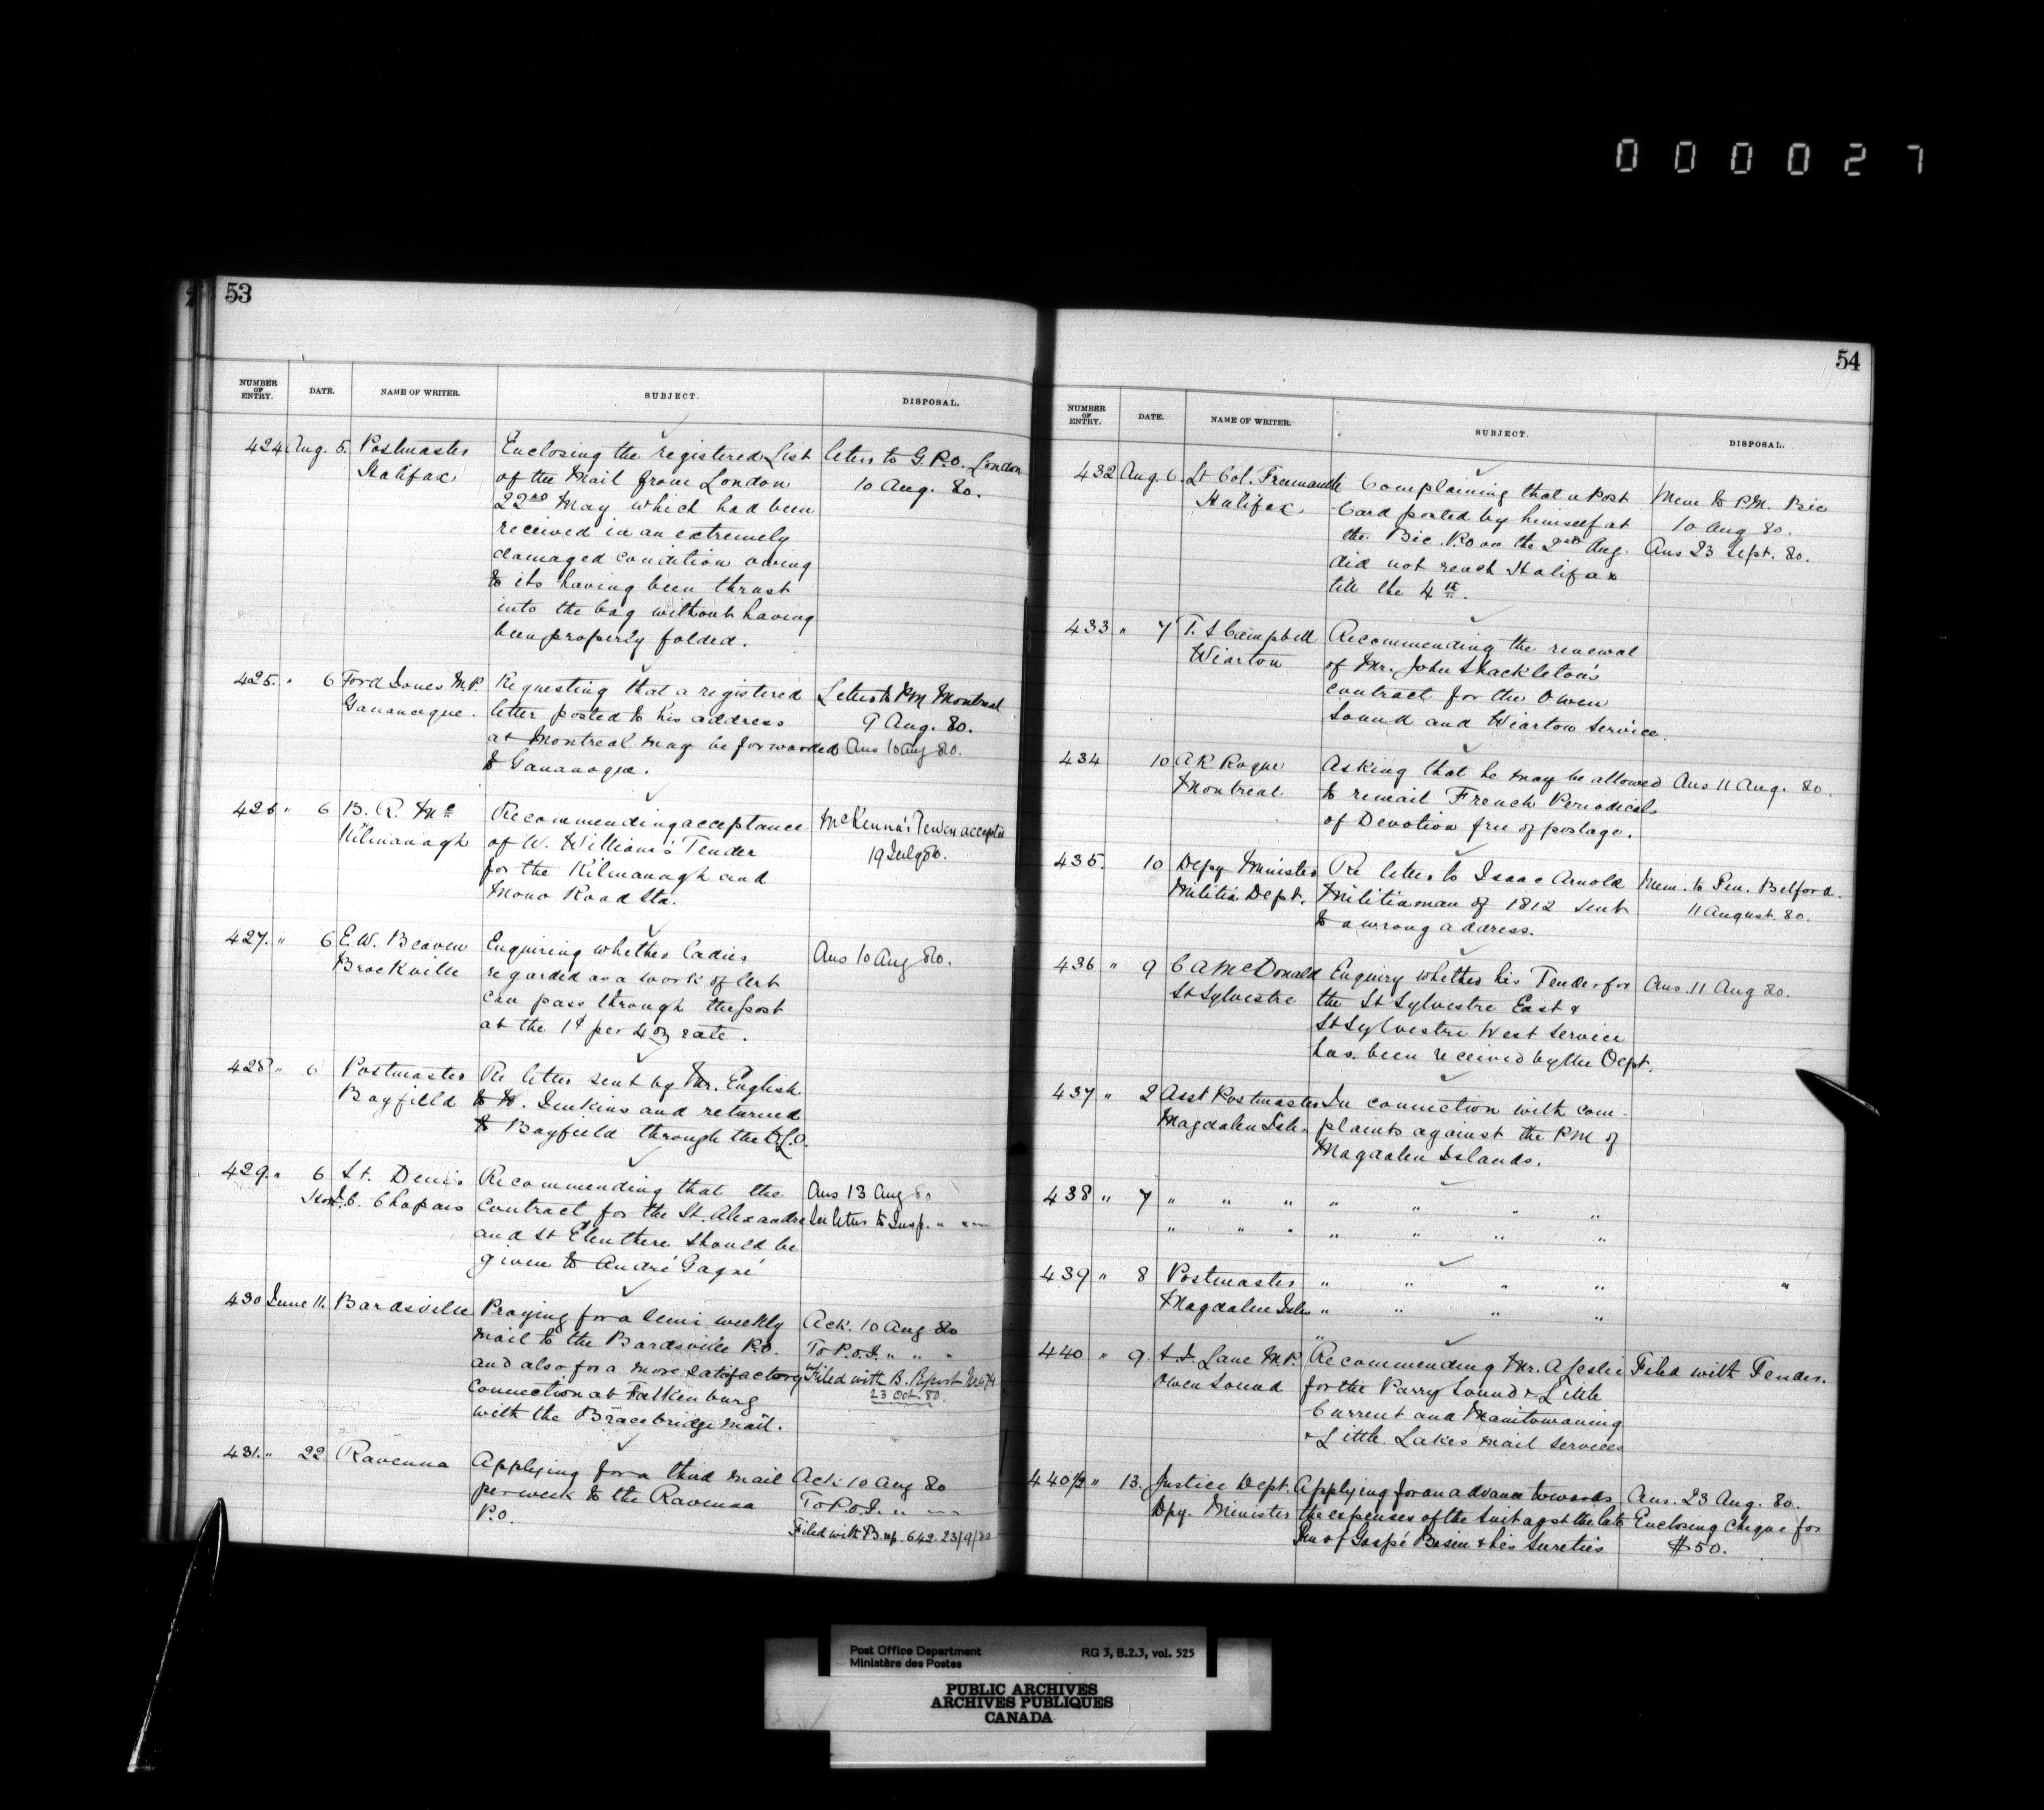 000027
53
NUMBER OF ENTRY. DATE. NAME OF WRITER. SUBJECT. DISPOSAL.
424 Aug. 5. Postmaster Enclosing the registered List letter to G.P.O. London
Halifax of the Mail from London 10 Aug. 80.
22nd May which had been
received in an extremely
damaged condition owing
to its having been thrust
into the bag without having
been properly folded.
425. " 6 Ford Jones M.P. Requesting that a registered Letter to PM Montreal
Gananoque. letter posted to his address 9 Aug. 80.
at Montreal may be forwarded Ans 10 Aug 80.
to Gananoque.
426 " 6 B. R. Mc Recommending acceptance McKenna's Tender accepted
Kilmanagh of W. William's Tender 19 July 80.
for the Kilmanagh and
Mono Road Sta.
427. " 6 E.W. Beaven Enquiring whether ladies Ans 10 Aug 80.
Brockville regarded as a work of Art
can pass through the post
at the 1¢ per 4 oz rate.
428 " 6 Postmaster Re letter sent by Mr. English
Bayfield to W. Jenkins and returned
to Bayfield through the D.L.O.
429. " 6 St. Denis Recommending that the Ans 13 Aug 80
Hon J.C. Chapais contract for the St. Alexandre In letter to Insp. " "
and St Eleuthere should be
given to André Gagné
430 June 11. Bardsville Praying for a semi weekly Ack. 10 Aug 80
mail to the Bardsville P.O. To P.O.I. " " "
and also for a more satisfactory Filed with B. Report No 674
connection at Falkenburg 23 Oct. 80.
with the Bracebridge mail.
431. " 22 Ravenna Applying for a third mail Ack 10 Aug 80
per week to the Ravenna To P.O.I. " "
P.O. Filed with B. rep. 642. 23/9/80
54
NUMBER OF ENTRY. DATE. NAME OF WRITER. SUBJECT. DISPOSAL.
432 Aug. 6. Lt Col. Freemantle Complaining that a Post Mem to P.M. Bic
Halifax Card posted by himself at 10 Aug 80.
the Bic P.O. on the 2nd Aug. Ans 23 Sept. 80.
did not reach Halifax
till the 4th.
433 " 7 T. S Campbell Recommending the renewal
Wiarton of Mr. John Shackleton's
contract for the Owen
Sound and Wiarton Service.
434 10 A R Roque Asking that he may be allowed Ans 11 Aug. 80.
Montreal to remail French Periodicals
of Devotion free of postage.
435. 10 Depy Minister Re letter to Isaac Arnold Mem. to Pen. Belford.
Militia Dept. Militiaman of 1812 sent 11 August. 80.
to a wrong address.
436 " 9 C A McDonald Enquiry whether his Tender for Ans. 11 Aug 80.
St Sylvestre the St Sylvestre East &
St Sylvestre West Service
has been received by the Dept.
437 " 2 Asst Postmaster In connection with com-
Magdalen Isls. plaints against the PM of
Magdalen Islands.
438 " 7 " " " " " " "
" " " " " " "
439 " 8 Postmaster " " " " "
Magdalen Isls " " " "
440 " 9. S. J. Lane M.P. Recommending Mr. A Leslie Filed with Tender.
Owen Sound for the Parry Sound & Little
Current and Manitowaning
& Little Lakes mail services
440½ " 13. Justice Dept. Applying for an advance towards Ans. 23 Aug. 80.
Dpy. Minister the expenses of the Suit agst the late Enclosing cheque for
of Gaspé Basin & his Sureties $50.
Post Office Department RG 3, B.2.3, vol. 525
Ministère des Postes
PUBLIC ARCHIVES
ARCHIVES PUBLIQUES
CANADA